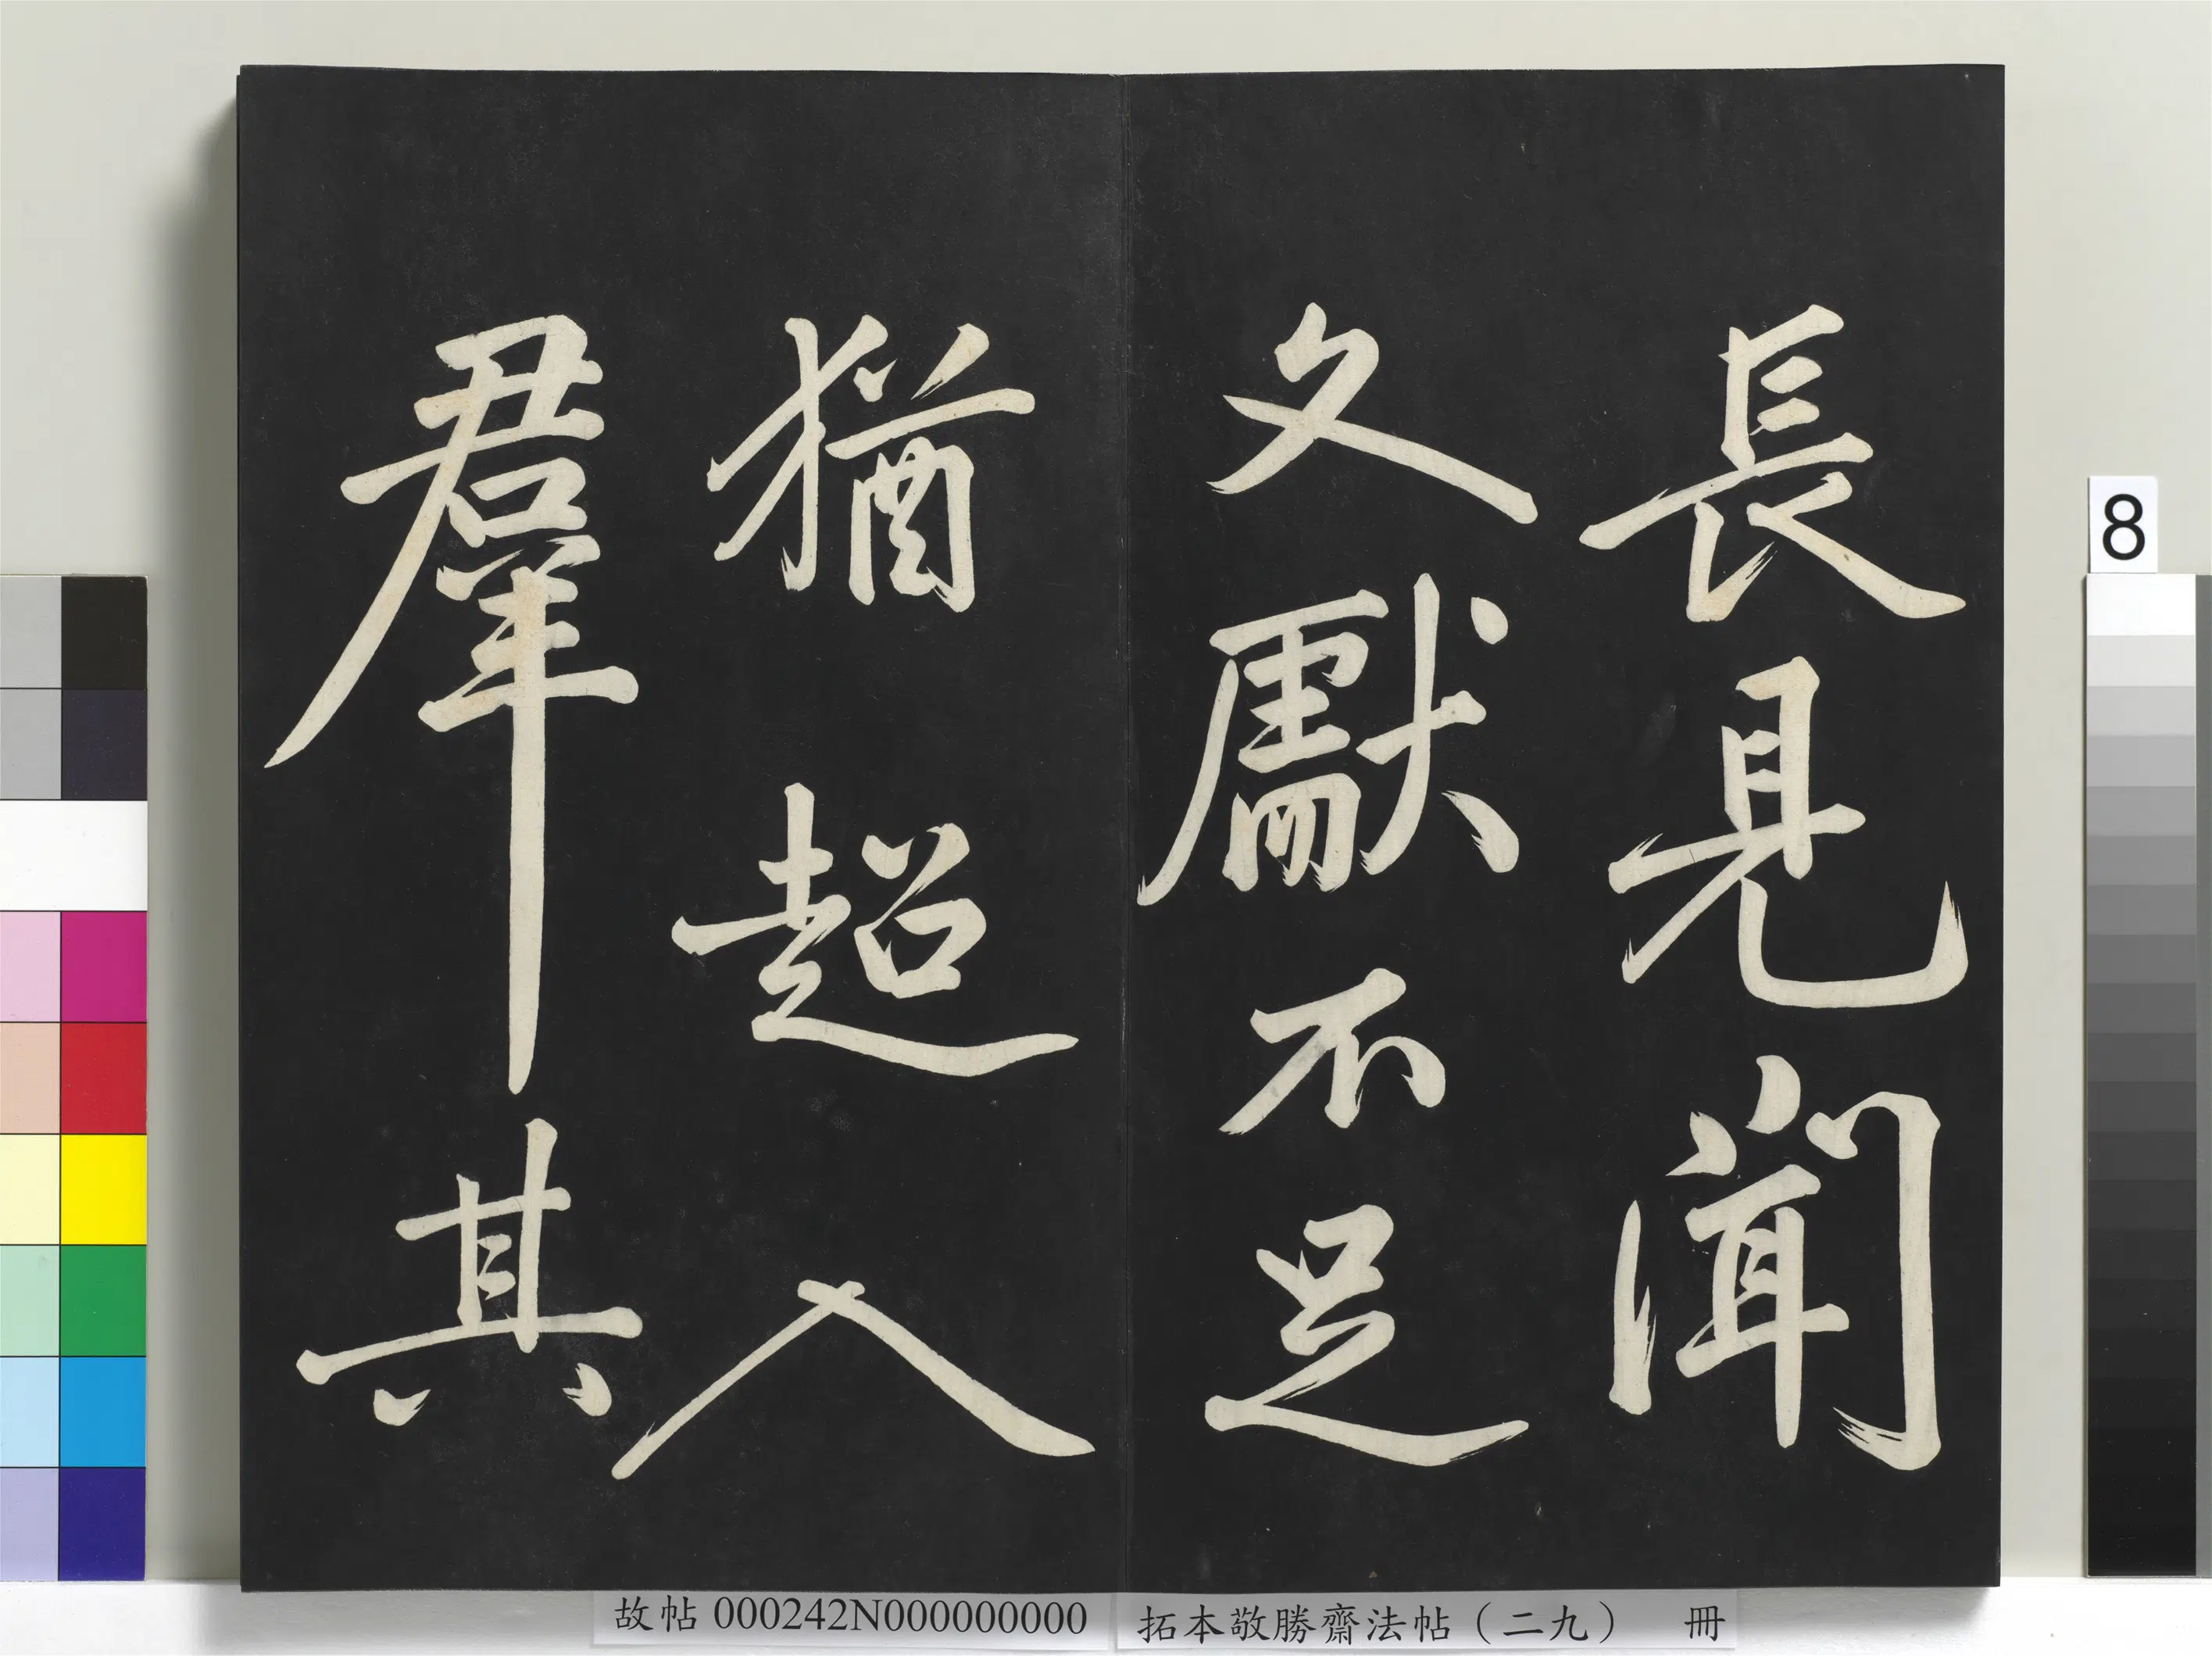 長見聞
文獻不足
猶超入
羣其
8
故帖 000242N000000000
拓本敬勝齋法帖（二九） 冊